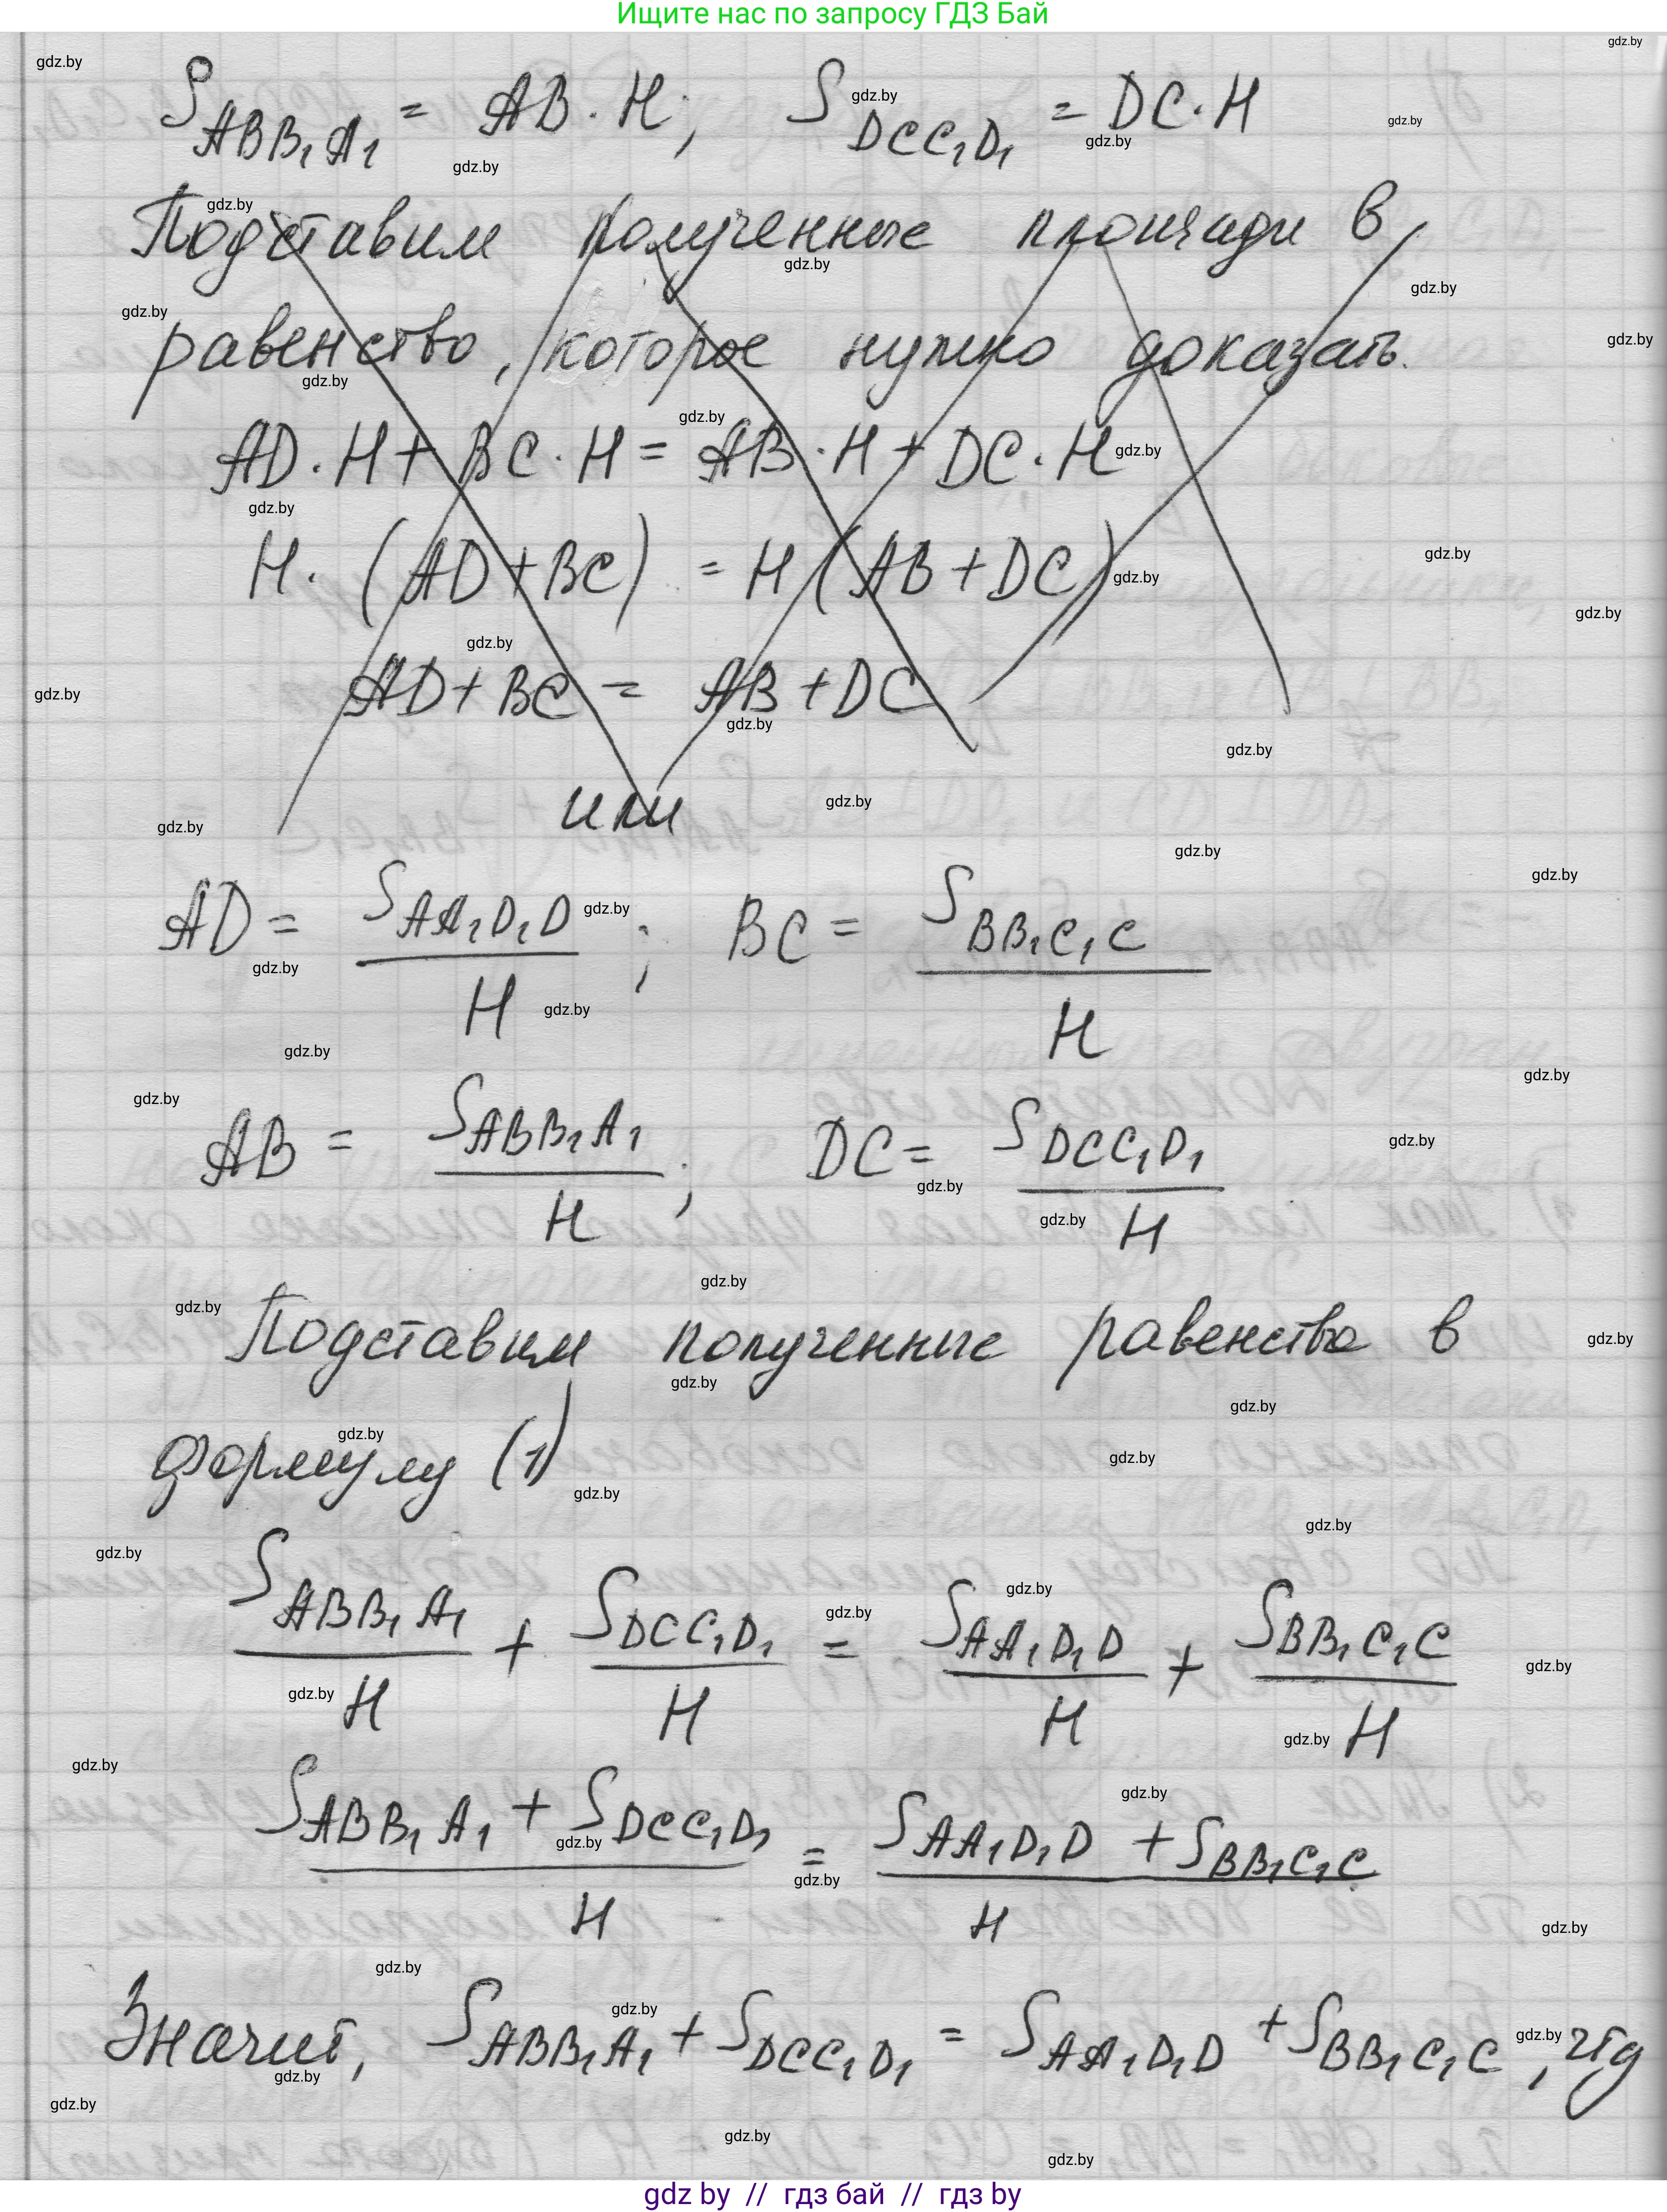 Ищите нас по запросу ГДЗ Бай
S_{ABB₁A₁} = AB · H; S_{DCC₁D₁} = DC · H
Подставим полученные площади в
равенство, которое нужно доказать.
AD · H + BC · H = AB · H + DC · H
H · (AD + BC) = H (AB + DC)
AD + BC = AB + DC
или
AD = S_{AA₁D₁D} / H ; BC = S_{BB₁C₁C} / H
AB = S_{ABB₁A₁} / H ; DC = S_{DCC₁D₁} / H
Подставим полученные равенства в
формулу (1)
S_{ABB₁A₁} / H + S_{DCC₁D₁} / H = S_{AA₁D₁D} / H + S_{BB₁C₁C} / H
(S_{ABB₁A₁} + S_{DCC₁D₁}) / H = (S_{AA₁D₁D} + S_{BB₁C₁C}) / H
Значит, S_{ABB₁A₁} + S_{DCC₁D₁} = S_{AA₁D₁D} + S_{BB₁C₁C}, чтд
gdz by // гдз бай // гдз by